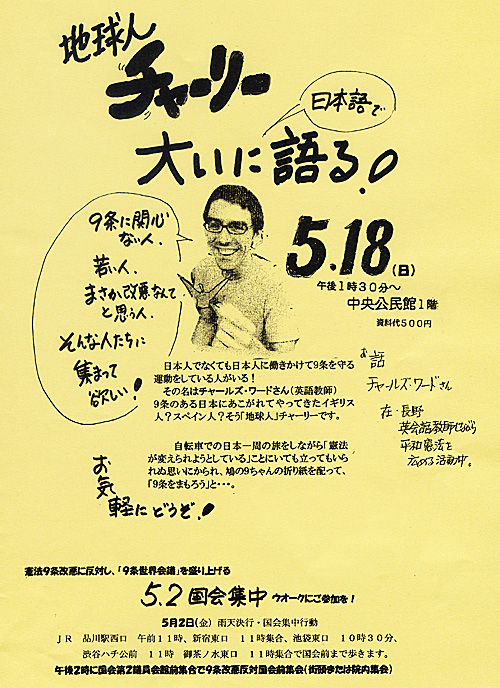 地球人
チャーリー
日本語で
大いに語る!
9条に関心
ない人、
若い人、
まさか改悪なんて
と思う人、
そんな人たちに
集まって
欲しい!
5.18(日)
午後1時30分〜
中央公民館1階
資料代500円
日本人でなくても日本人に働きかけて9条を守る
運動をしている人がいる!
その名はチャールズ・ワードさん(英語教師)
9条のある日本にあこがれてやってきたイギリス
人?スペイン人?そう「地球人」チャーリーです。
自転車での日本一周の旅をしながら「憲法
が変えられようとしている」ことにいても立ってもいら
れぬ思いにかられ、鳩の9ちゃんの折り紙を配って、
「9条をまもろう」と・・・。
お話
チャールズ・ワードさん
在・長野
英会話教師しながら
平和憲法を
広める活動中。
お気
軽にどうぞ!
憲法9条改悪に反対し、「9条世界会議」を盛り上げる
5.2国会集中 ウオークにご参加を!
5月2日(金) 雨天決行・国会集中行動
JR 品川駅西口 午前11時、新宿東口 11時集合、池袋東口 10時30分、
渋谷ハチ公前 11時 御茶ノ水東口 11時集合で国会前まで歩きます。
午後2時に国会第2議員会館前集合で9条改悪反対国会前集会(街頭または院内集会)